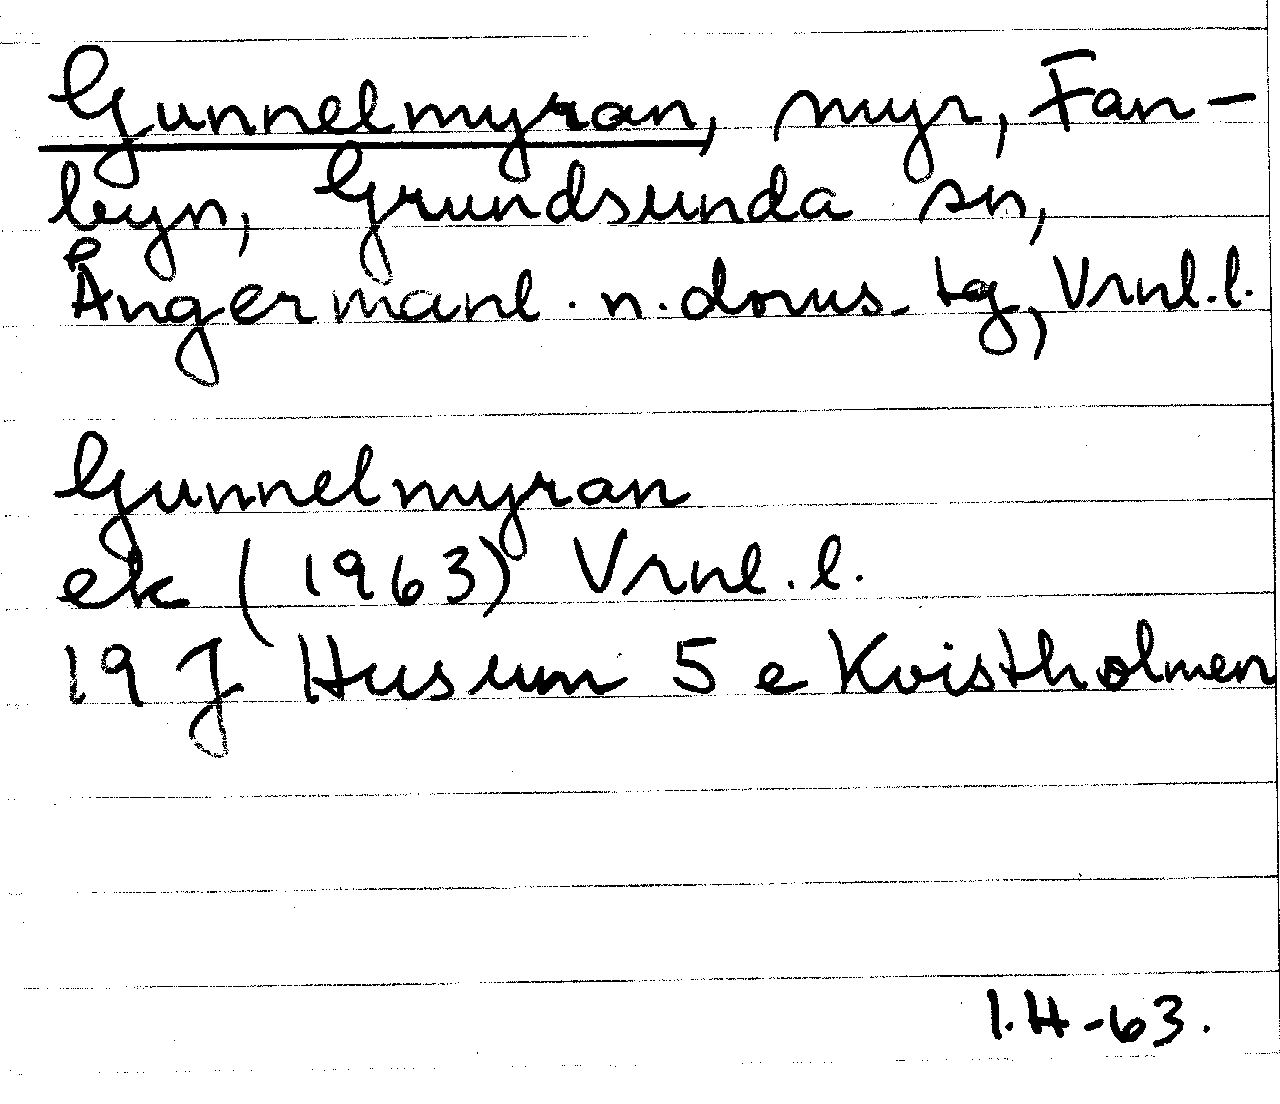 Gunnelmyran, myr, Fan-
byn, Grundsunda sn,
Ångermanl. n. doms. tg, Vrnl.l.
Gunnelmyran
ek (1963) Vrnl.l.
19 J Husum 5 e Kvistholmen
I.H-63.